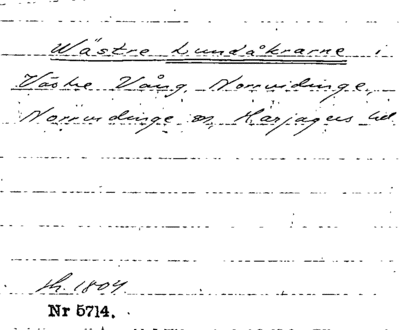 Wästre Lundåkrarne i
Västre Vång, Norrvidinge,
Norrvidinge sn, Harjagers hd.
sk. 1804
Nr 5714.